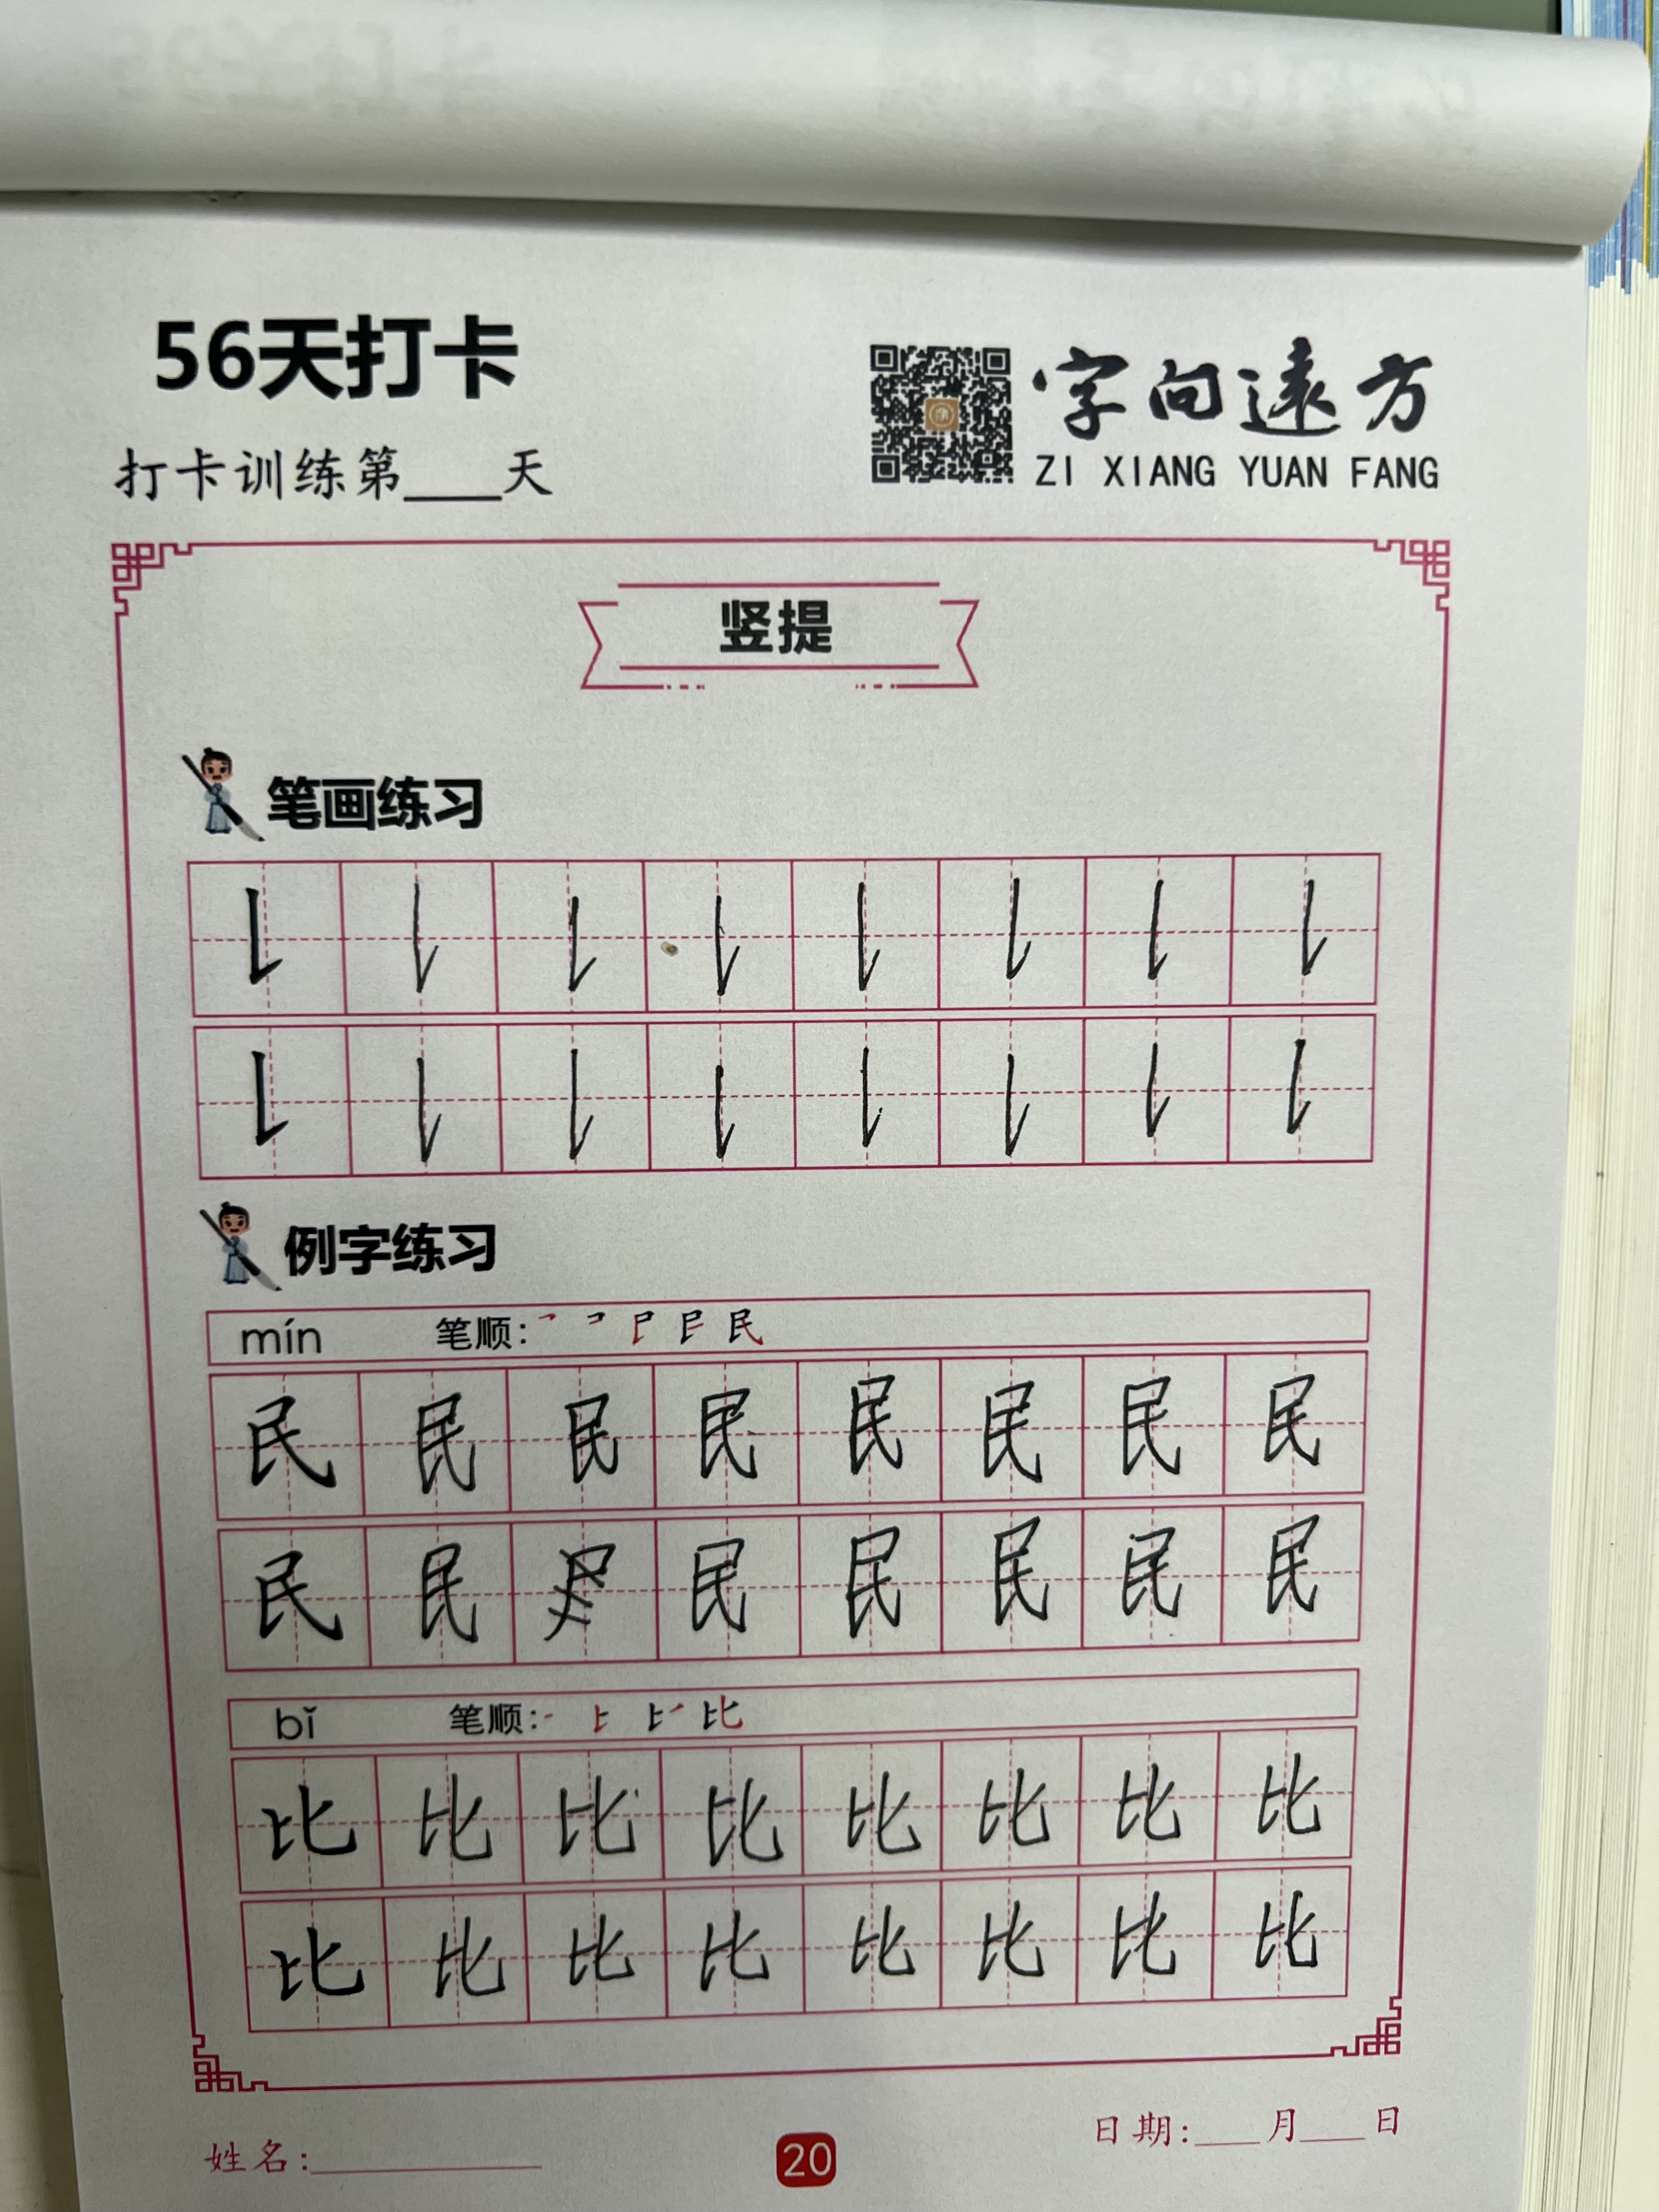 56天打卡
打卡训练第____天
字向遠方
ZI XIANG YUAN FANG
竖提
笔画练习
例字练习
mín 笔顺:
民 民 民 民 民 民 民 民
民 民 民 民 民 民 民
bǐ 笔顺:
比 比 比 比 比 比 比 比
比 比 比 比 比 比 比 比
姓名:____________
20
日期:____月____日